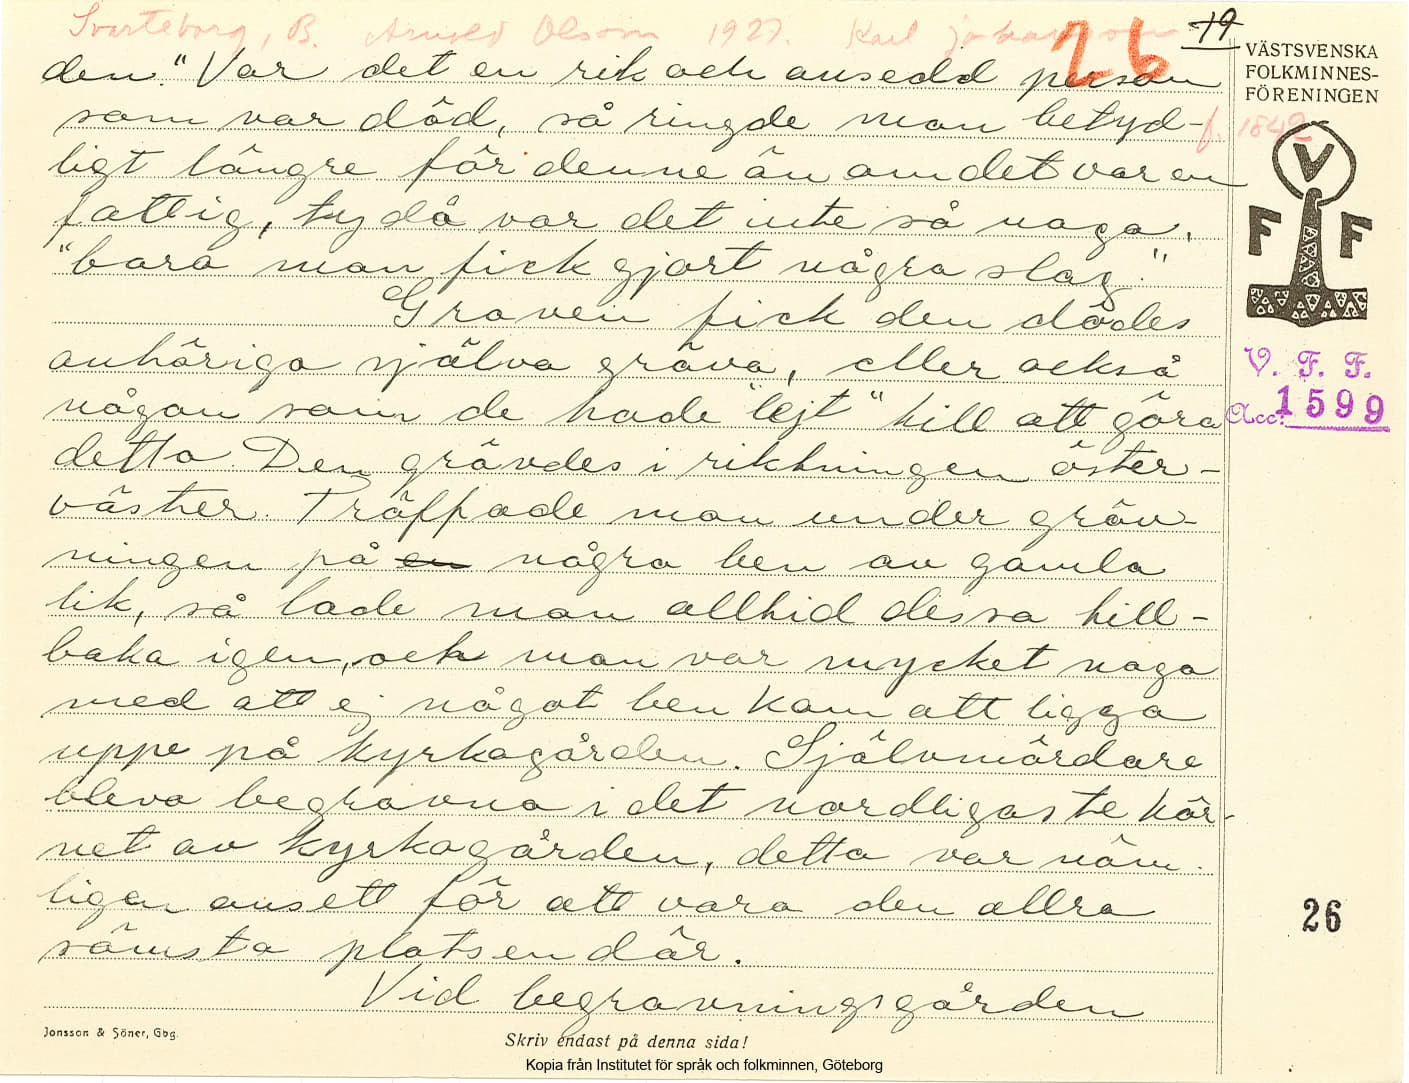 Svarteborg, B. Arnold Olsson 1927. Karl Johansson
26
19
f. 1842
den." Var det en rik och ansedd person
som var död, så ringde man betyd-
ligt längre för denne än om det var en
fattig, ty då var det inte så noga,
"bara man fick gjort några slag."
Graven fick den dödes
anhöriga själva gräva, eller också
någon som de hade "lejt" till att göra
detta. Den grävdes i riktningen öster-
väster. Träffade man under gräv-
ningen på en några ben av gamla
lik, så lade man alltid dessa till-
baka igen, och man var mycket noga
med att ej något ben kom att ligga
uppe på kyrkogården. Självmördare
bleva begravna i det nordligaste hör-
net av kyrkogården, detta var näm-
ligen ansett för att vara den allra
sämsta platsen där.
Vid begravningsgården
VÄSTSVENSKA
FOLKMINNES-
FÖRENINGEN
V
F F
V. F. F.
Acc: 1599
26
Jonsson & Söner, Gbg.
Skriv endast på denna sida!
Kopia från Institutet för språk och folkminnen, Göteborg